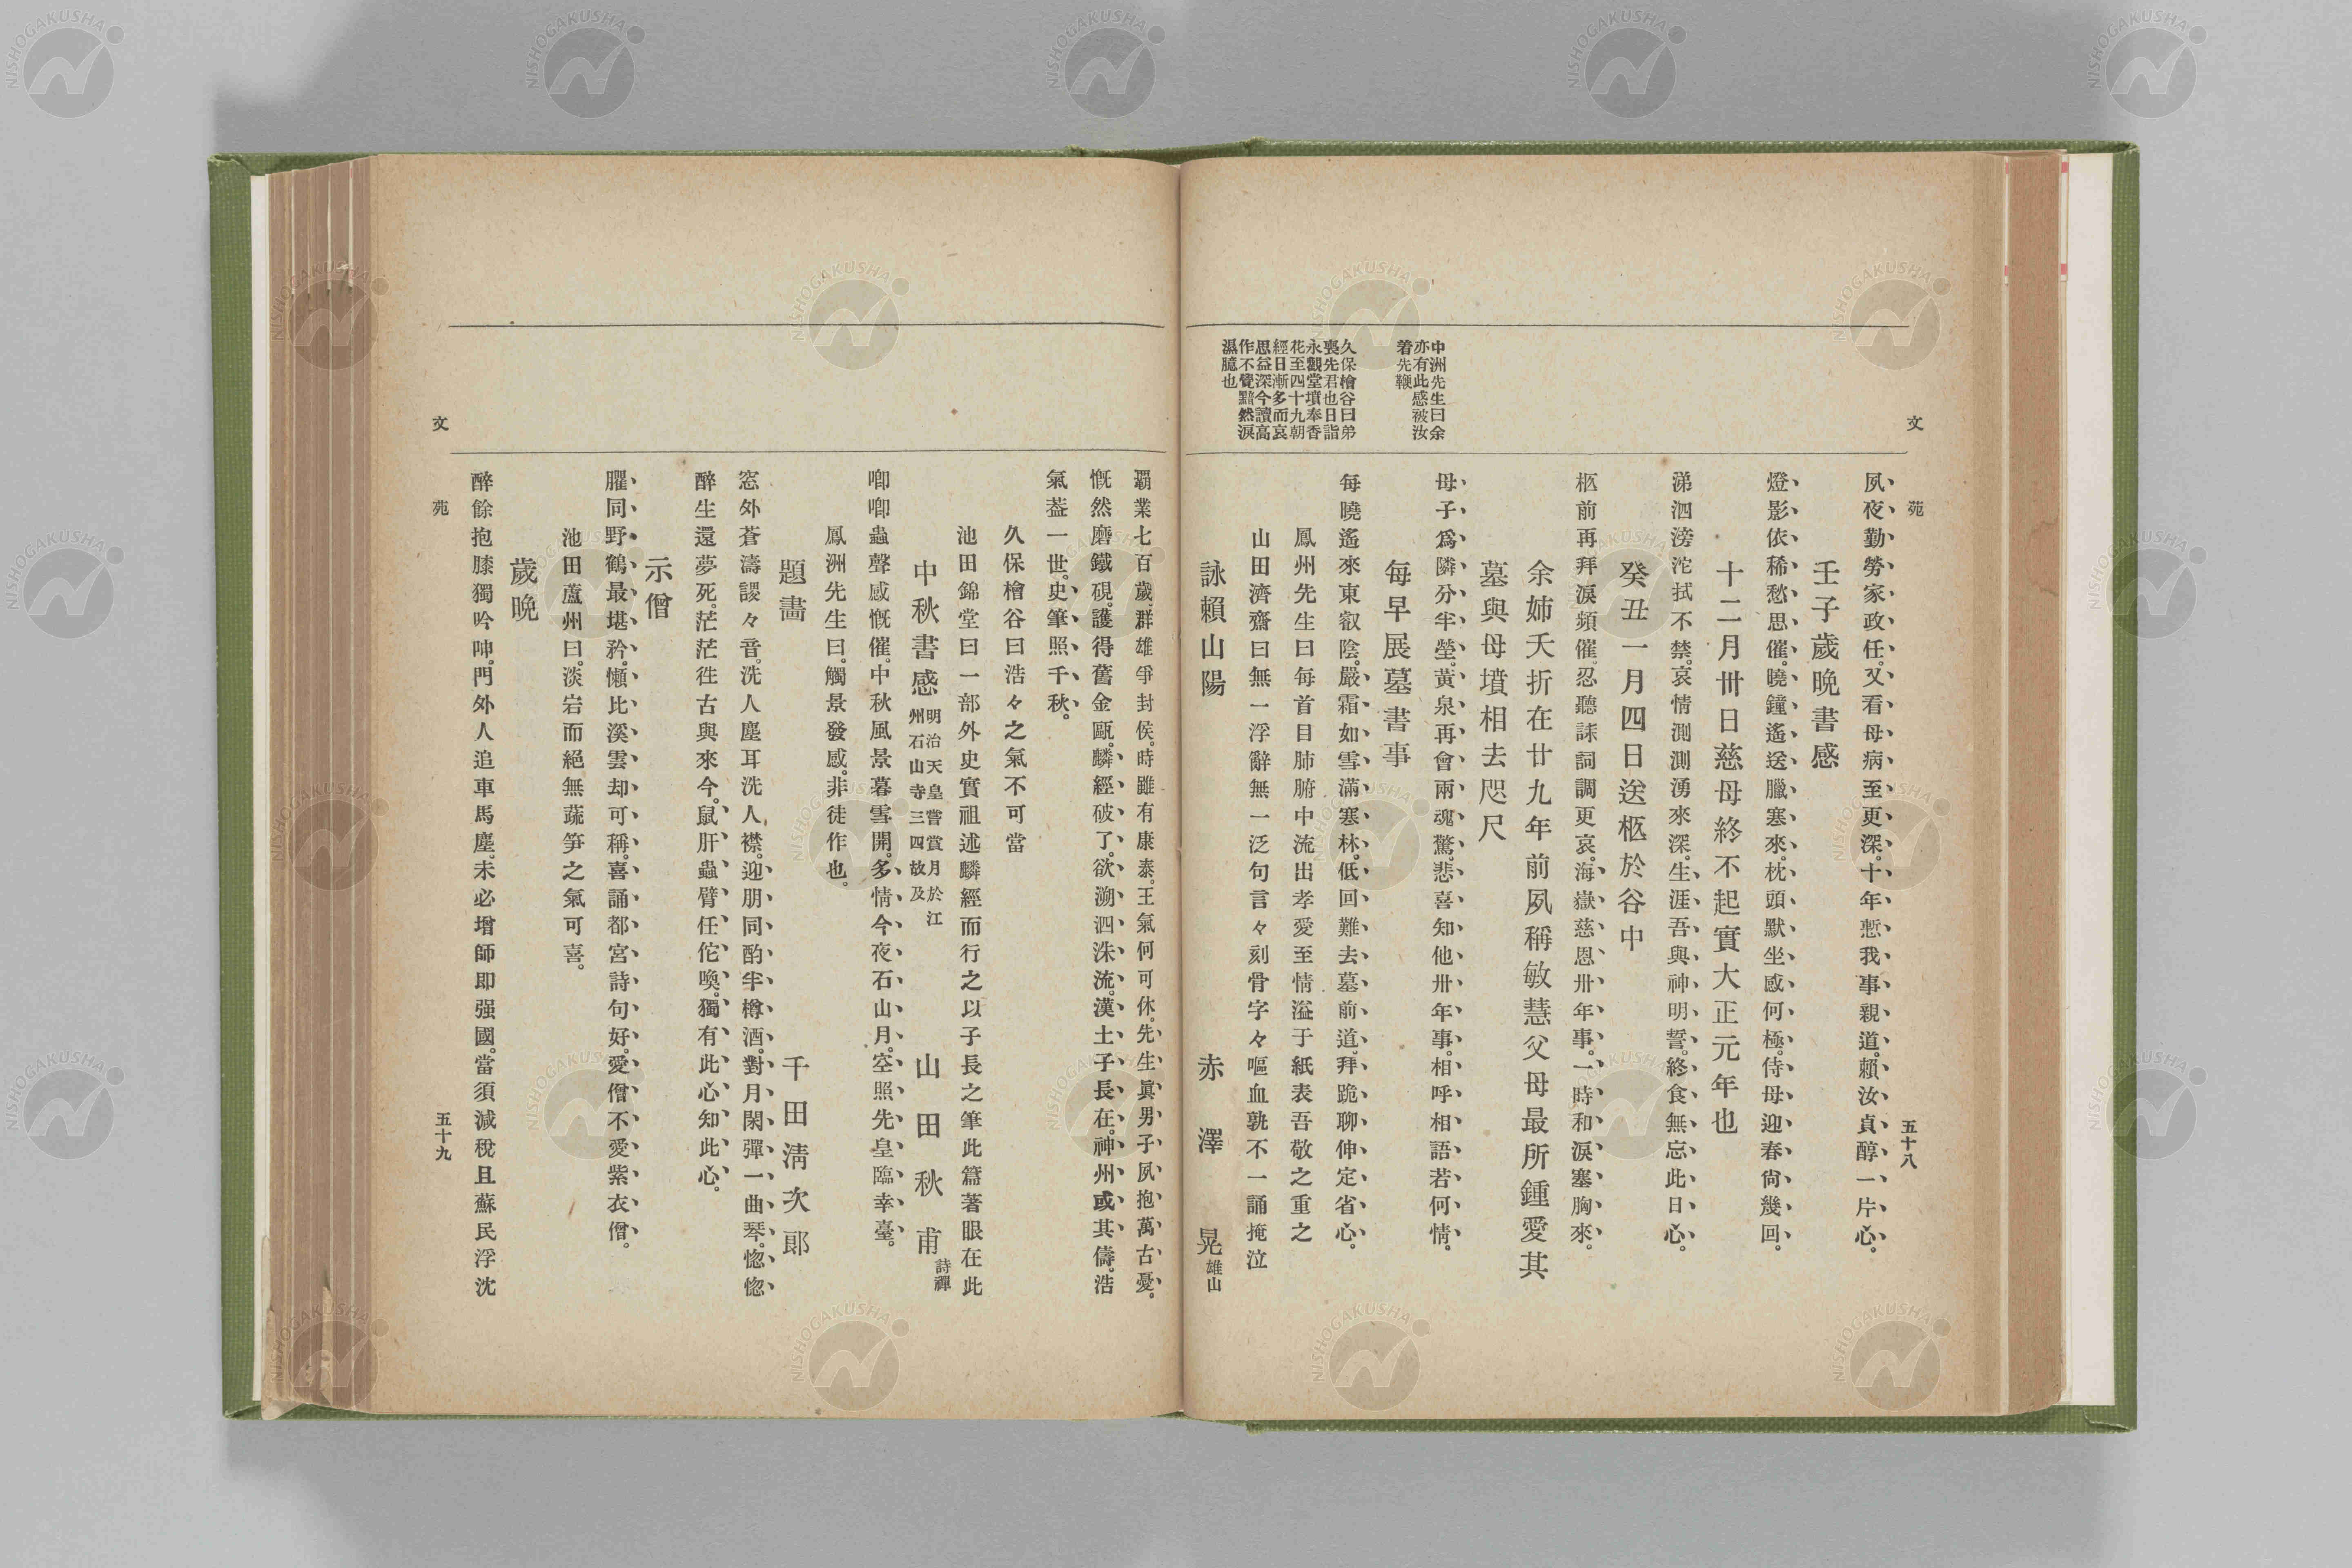 文苑
五十八
夙夜勤勞家政任。又看母病至更深。十年慙我事親道。賴汝貞醇一片心。
壬子歲晩書感
燈影依稀愁思催。曉鐘遙送臘寒來。枕頭默坐感何極。侍母迎春尙幾回。
十二月卅日慈母終不起實大正元年也
涕泗滂沱拭不禁。哀情測測湧來深。生涯吾與神明誓。終食無忘此日心。
癸丑一月四日送柩於谷中
柩前再拜淚頻催。忍聽誄詞調更哀。海嶽慈恩卅年事。一時和淚塞胸來。
余姉夭折在廿九年前夙稱敏慧父母最所鍾愛其
墓與母墳相去咫尺
中洲先生曰余
亦有此感被汝
着先鞭
母子爲隣分半塋。黃泉再會兩魂驚。悲喜知他卅年事。相呼相語若何情。
每早展墓書事
久保檜谷曰弟
喪先君也日詣
永觀堂墳奉香
花至四十九朝
經日漸多而哀
思益深今讀高
作不覺黯然淚
濕臆也
每曉遙來東叡陰。嚴霜如雪滿寒林。低回難去墓前道。拜跪聊伸定省心。
鳳州先生曰每首目肺腑中流出孝愛至情溢于紙表吾敬之重之
山田濟齋曰無一浮辭無一泛句言々刻骨字々嘔血孰不一誦掩泣
詠賴山陽 赤澤晃雄山
霸業七百歲。群雄爭封侯。時雖有康泰。王氣何可休。先生眞男子。夙抱萬古憂。
慨然磨鐵硯。護得舊金甌。麟經破了。欲溯泗洙流。漢土子長在。神州或其儔。浩
氣葢一世。史筆照千秋。
久保檜谷曰浩々之氣不可當
池田錦堂曰一部外史實祖述麟經而行之以子長之筆此篇著眼在此
中秋書感 明治天皇嘗賞月於江州石山寺三四故及 山田秋甫詩禪
喞喞蟲聲感慨催。中秋風景暮雲開。多情今夜石山月。空照先皇臨幸臺。
鳳洲先生曰。觸景發感。非徒作也。
題畵 千田淸次郎
窓外蒼濤謖々音。洗人塵耳洗人襟。迎朋同酌半樽酒。對月閑彈一曲琴。惚惚
醉生還夢死。茫茫徃古與來今。鼠肝蟲臂任佗喚。獨有此心知此心。
示僧
臞同野鶴最堪矜。懶比溪雲却可稱。喜誦都宮詩句好。愛僧不愛紫衣僧。
池田蘆州曰。淡岩而絕無蔬笋之氣可喜。
歲晩
醉餘抱膝獨吟呻。門外人追車馬塵。未必增師卽强國。當須減稅且蘇民浮沈
文苑
五十九